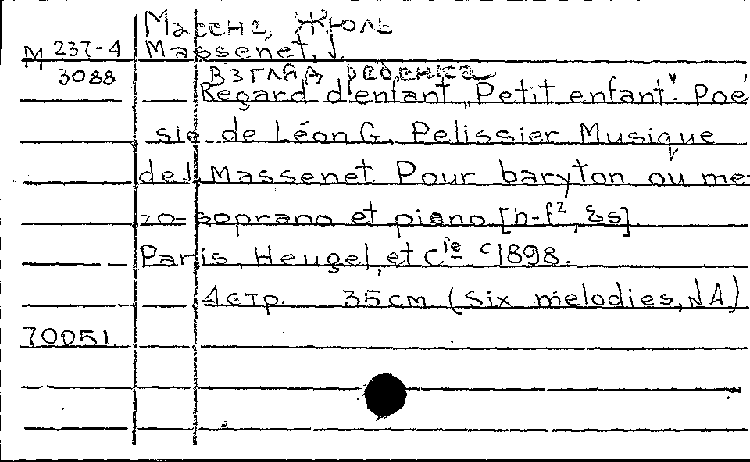 Массне, Жюль
М 237-4 Massenet, J.
3088 Взгляд ребенка
Regard d'enfant „Petit enfant". Poé
sie de Léon G. Pelissier Musique
de J. Massenet Pour baryton ou mez
zo-soprano et piano [h-f², &s]
Paris, Heugel, et Cie c1898.
4 стр. 35 cm (Six melodies, № 4)
70051